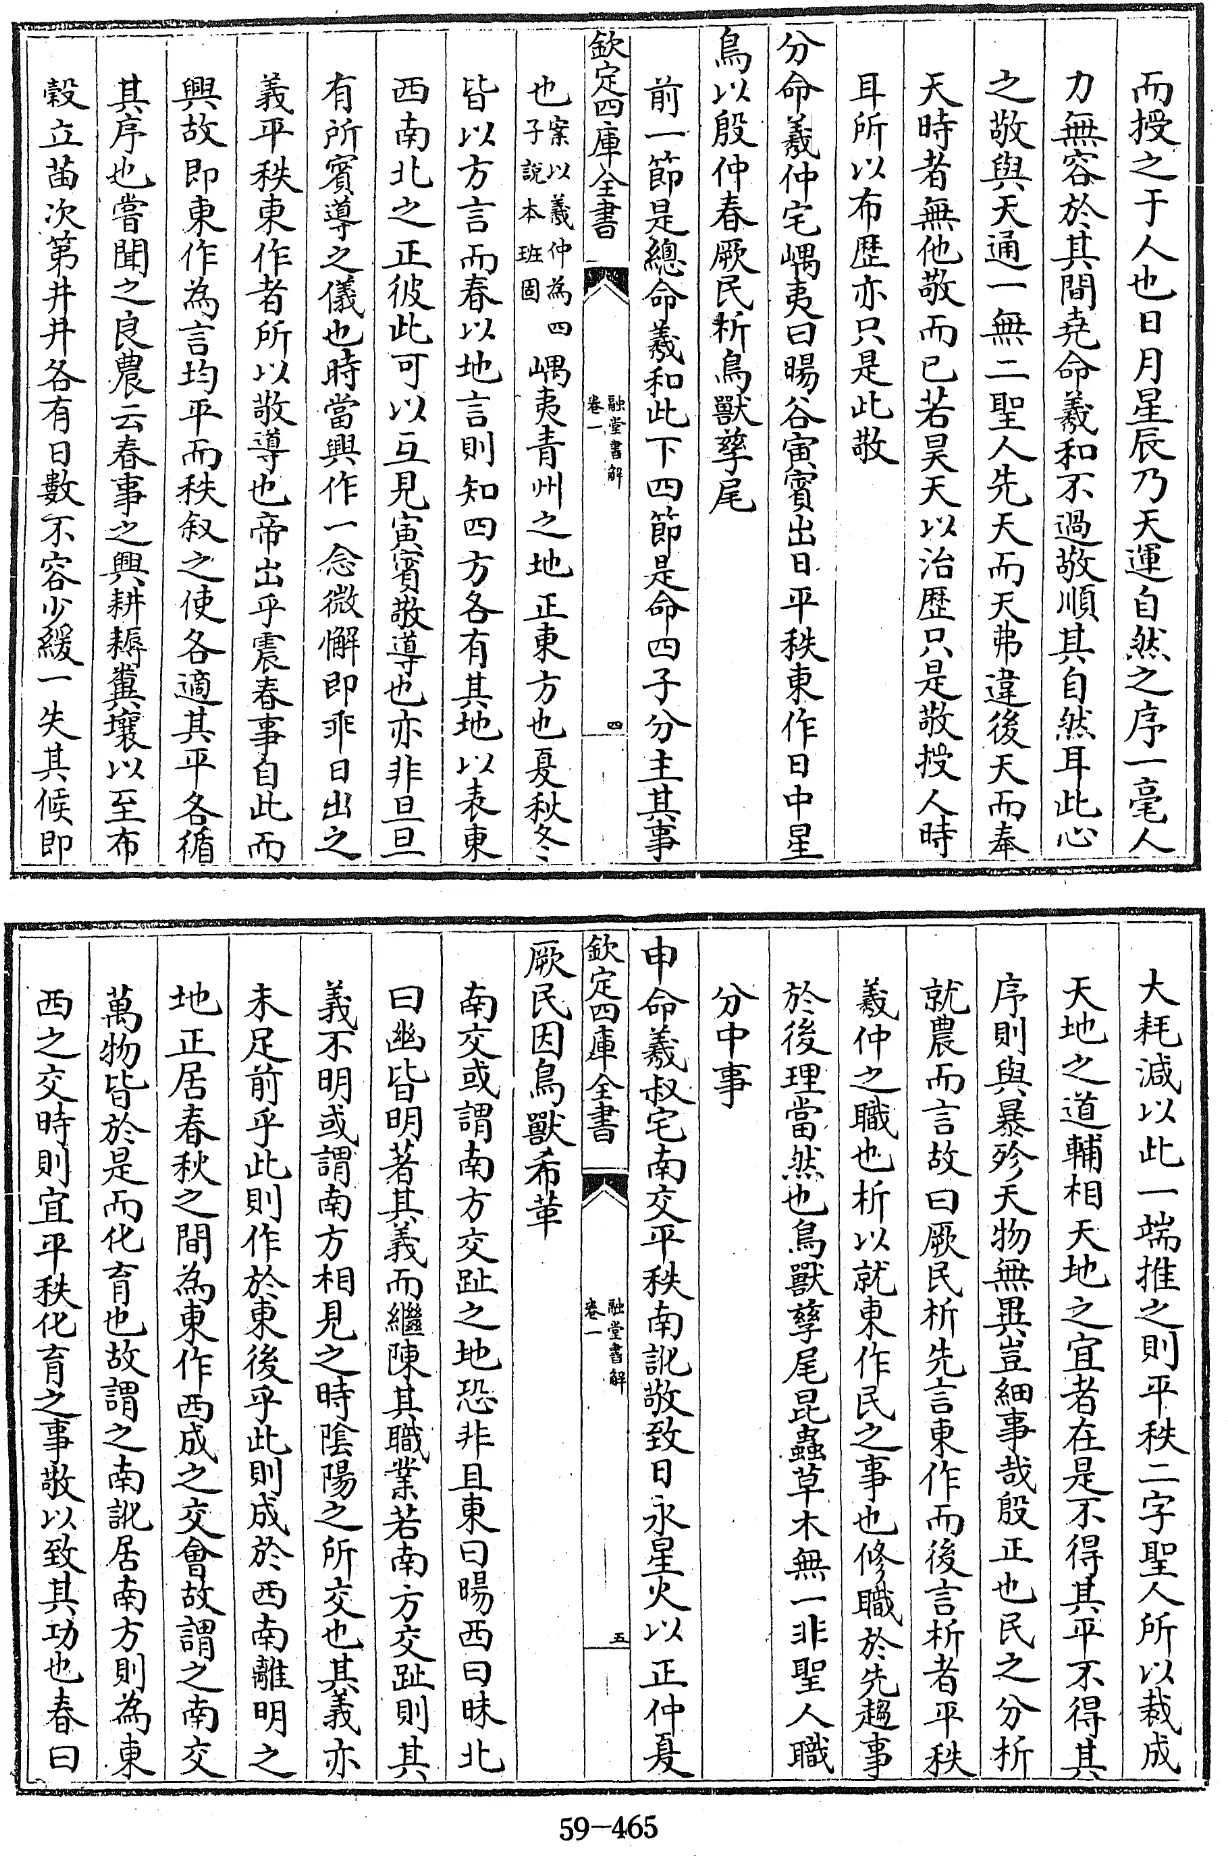 而授之于人也日月星辰乃天運自然之序一毫人
力無容於其間堯命羲和不過敬順其自然耳此心
之敬與天通一無二聖人先天而天弗違後天而奉
天時者無他敬而已若昊天以治歴只是敬授人時
耳所以布歴亦只是此敬
分命羲仲宅嵎夷曰暘谷寅賓出日平秩東作日中星
鳥以殷仲春厥民析鳥獸孳尾
前一節是總命羲和此下四節是命四子分主其事
欽定四庫全書
融堂書解
卷一
四
也案以羲仲為四
子説本班固
嵎夷青州之地正東方也夏秋冬
皆以方言而春以地言則知四方各有其地以表東
西南北之正彼此可以互見寅賓敬導也亦非旦旦
有所賓導之儀也時當興作一念微懈即非日出之
義平秩東作者所以敬導也帝出乎震春事自此而
興故即東作為言均平而秩叙之使各適其平各循
其序也嘗聞之良農云春事之興耕耨糞壤以至布
穀立苗次第井井各有日數不容少緩一失其候即
大耗減以此一端推之則平秩二字聖人所以裁成
天地之道輔相天地之宜者在是不得其平不得其
序則與暴殄天物無異豈細事哉殷正也民之分析
就農而言故曰厥民析先言東作而後言析者平秩
羲仲之職也析以就東作民之事也修職於先趨事
於後理當然也鳥獸孳尾昆蟲草木無一非聖人職
分中事
申命羲叔宅南交平秩南訛敬致日永星火以正仲夏
欽定四庫全書
融堂書解
卷一
五
厥民因鳥獸希革
南交或謂南方交趾之地恐非且東曰暘西曰昧北
曰幽皆明著其義而繼陳其職業若南方交趾則其
義不明或謂南方相見之時陰陽之所交也其義亦
未足前乎此則作於東後乎此則成於西南離明之
地正居春秋之間為東作西成之交會故謂之南交
萬物皆於是而化育也故謂之南訛居南方則為東
西之交時則宜平秩化育之事敬以致其功也春曰
59-465